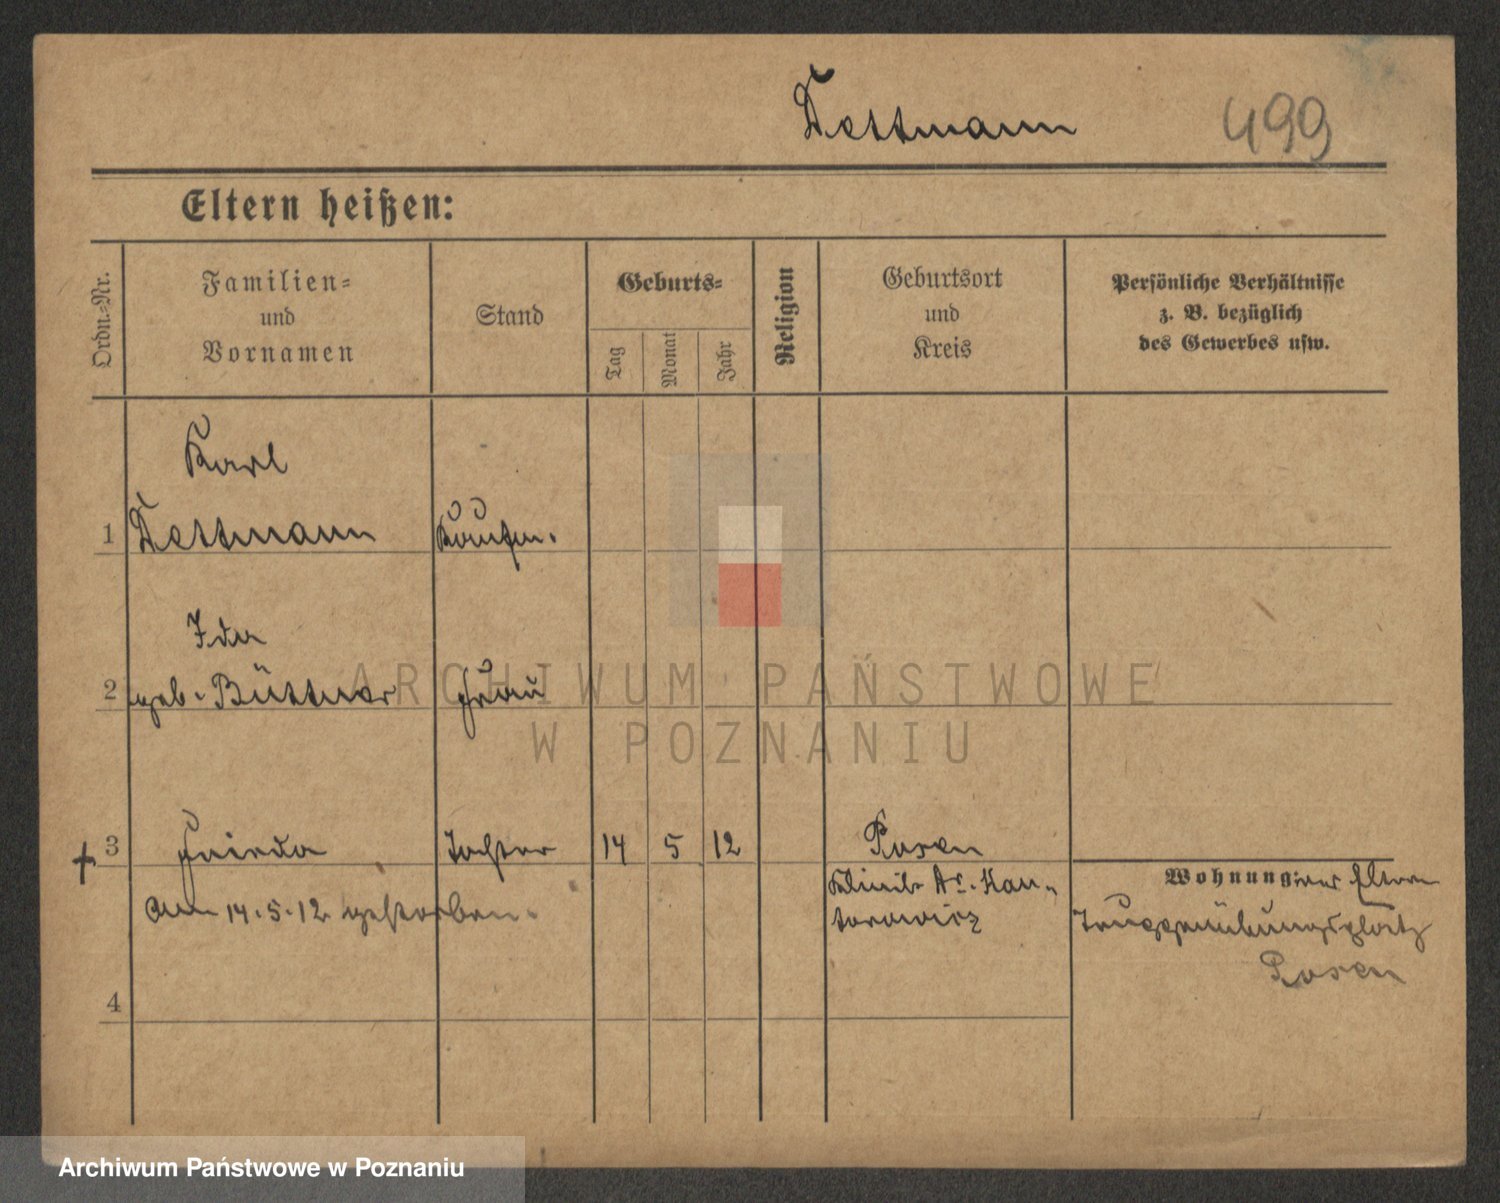 Dettmann 499
Eltern heißen:
Ordn.-Nr.
Familien-
und
Vornamen
Stand
Geburts-
Tag
Monat
Jahr
Religion
Geburtsort
und
Kreis
Persönliche Verhältnisse
z. B. bezüglich
des Gewerbes usw.
Karl
1 Dettmann Kaufm.
Ida
2 geb. Büttner Frau
+ 3 Frieda Tochter 14 5 12 Posen
Klinik Dr. Kan-
torowicz
am 14.5.12 gestorben.
Wohnung: der Eltern
Truppenübungsplatz
Posen
4
ARCHIWUM PAŃSTWOWE
W POZNANIU
Archiwum Państwowe w Poznaniu